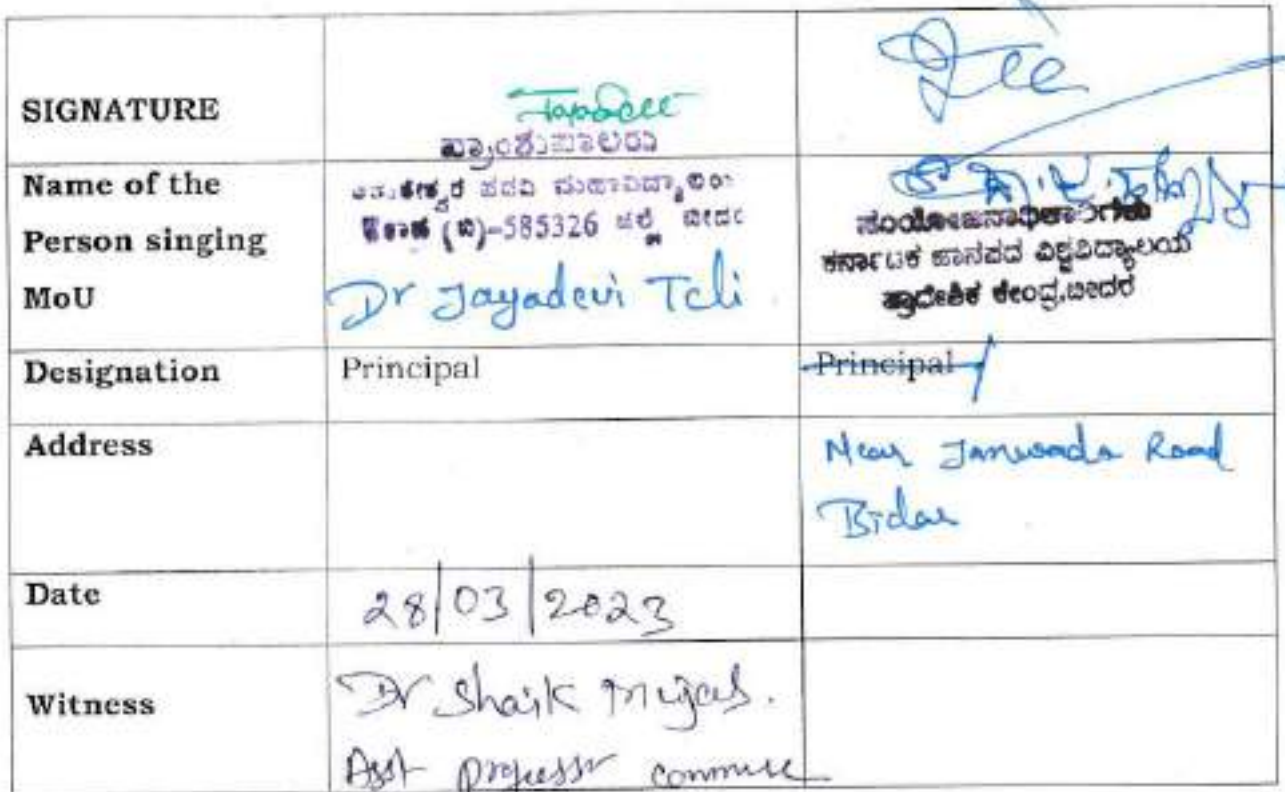 SIGNATURE
ಪ್ರಾಂಶುಪಾಲರು
Name of the
Person singing
MoU
ಪದವಿ ಮಹಾವಿದ್ಯಾಲಯ
(ಬಿ)-585326 ಜಿಲ್ಲೆ ಬೀದರ
Dr Jayadevi Teli
ಸಂಯೋಜನಾಧಿಕಾರಿಗಳು
ಕರ್ನಾಟಕ ಜಾನಪದ ವಿಶ್ವವಿದ್ಯಾಲಯ
ಪ್ರಾದೇಶಿಕ ಕೇಂದ್ರ,ಬೀದರ
Designation
Principal
Principal
Address
Near Janwada Road
Bidar
Date
28/03/2023
Witness
Dr Shaik
Asst professor commerce